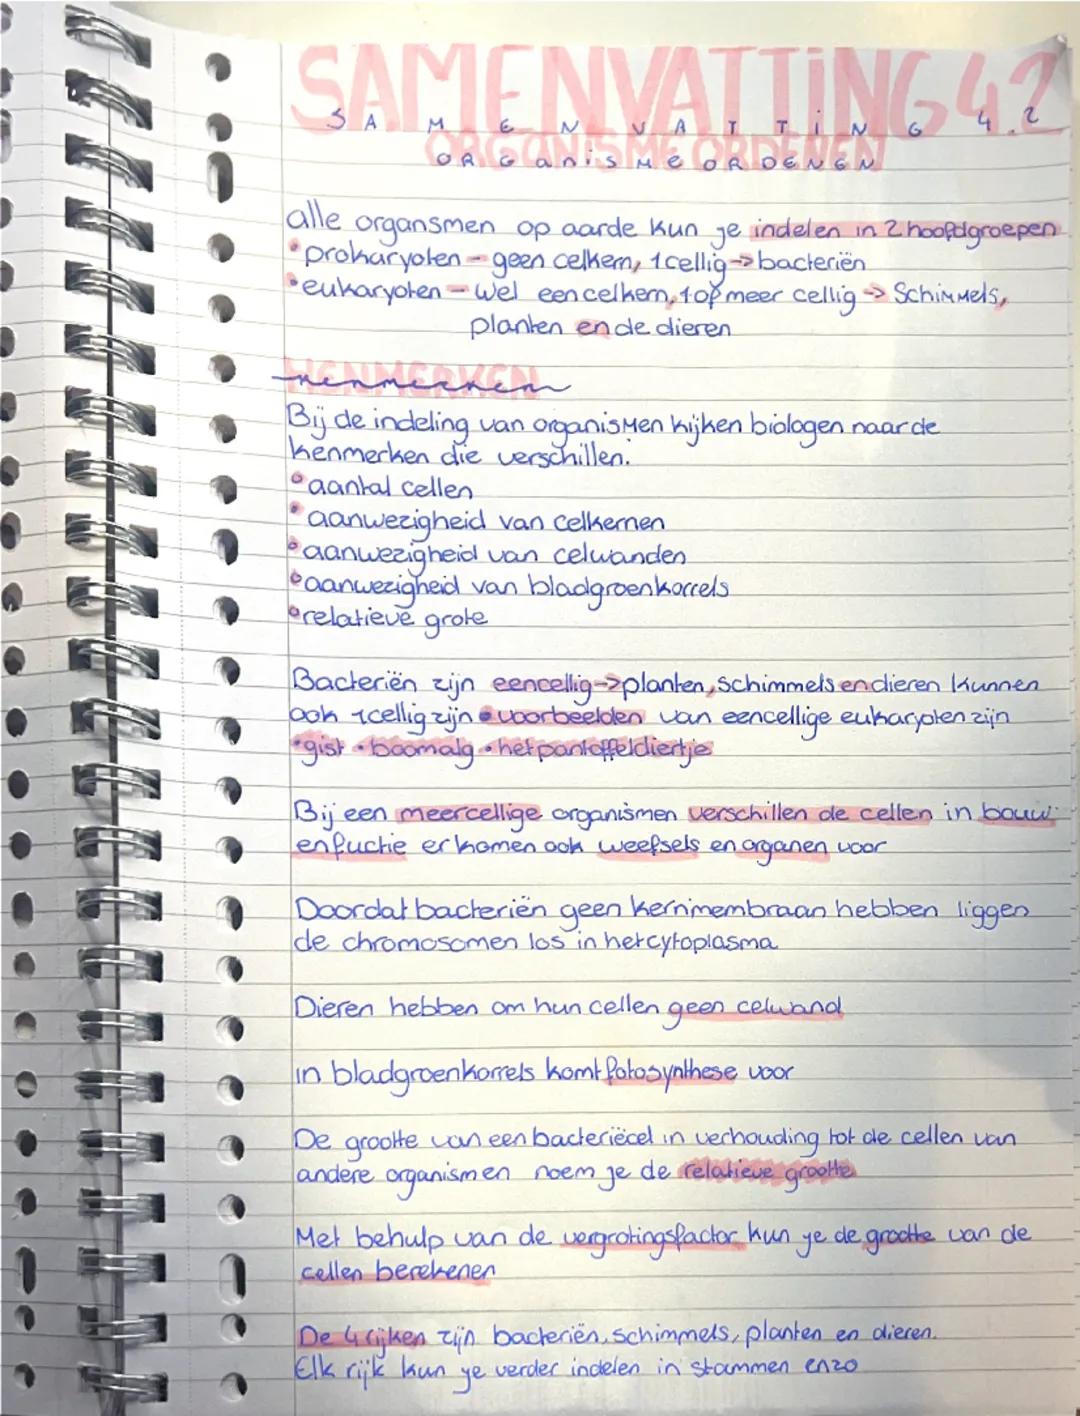 SAMENVATTiNG 4.2
SAMENVATTiNG 4.2
ORGANISME ORDENEN
ORGanisMe ORDENEN
alle organsmen op aarde kun je indelen in 2 hoofdgroepen
• prokaryoten - geen celkern, 1 cellig -> bacteriën
• eukaryoten - wel een celkern, 1 of meer cellig -> Schimmels,
planten en de dieren
KENMERKEN
kenmerken
Bij de indeling van organismen kijken biologen naar de
kenmerken die verschillen.
• aantal cellen
• aanwezigheid van celkernen
• aanwezigheid van celwanden
• aanwezigheid van bladgroenkorrels
• relatieve grote
Bacteriën zijn eencellig -> planten, schimmels en dieren kunnen
ook 1cellig zijn • voorbeelden van eencellige eukaryoten zijn
• gist • boomalg • het pantoffeldiertje
Bij een meercellige organismen verschillen de cellen in bouw
en fuctie er komen ook weefsels en organen voor
Doordat bacteriën geen kernmembraan hebben liggen
de chromosomen los in het cytoplasma
Dieren hebben om hun cellen geen celwand
in bladgroenkorrels komt fotosynthese voor
De grootte van een bacteriëcel in verhouding tot de cellen van
andere organismen noem je de relatieve grootte
Met behulp van de vergrotingsfactor kun je de grootte van de
cellen berekenen
De 4 rijken zijn bacteriën, schimmels, planten en dieren.
Elk rijk kun je verder indelen in stammen enzo